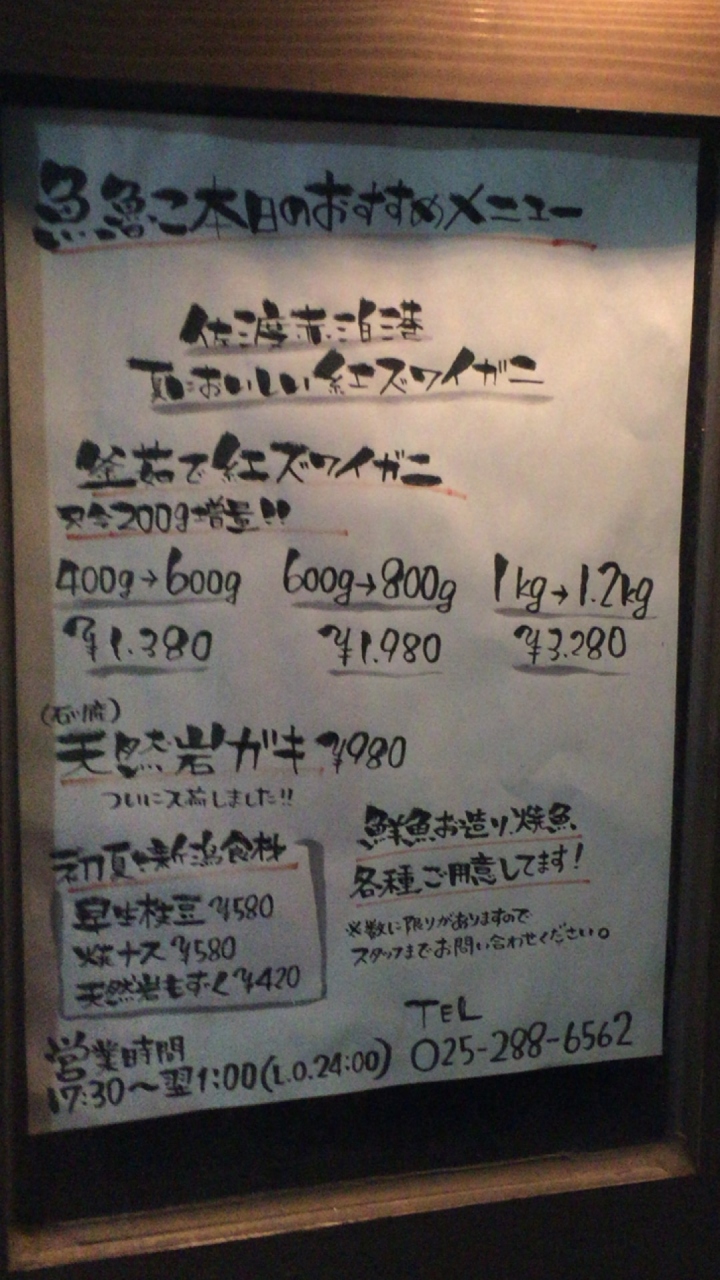 魚魯こ本日のおすすめメニュー
佐渡赤泊港
夏においしい紅ズワイガニ
釜茹で紅ズワイガニ
只今200g増量!!
400g→600g 600g→800g 1kg→1.2kg
¥1.380 ¥1.980 ¥3.280
(石川産)
天然岩ガキ ¥980
ついに入荷しました!!
鮮魚お造り、焼魚
各種ご用意してます!
※数に限りがありますので
スタッフまでお問い合わせください。
初夏の新潟食材
早生枝豆 ¥580
焼ナス ¥580
天然岩もずく ¥420
営業時間
17:30〜翌1:00(L.O.24:00)
TEL
025-288-6562